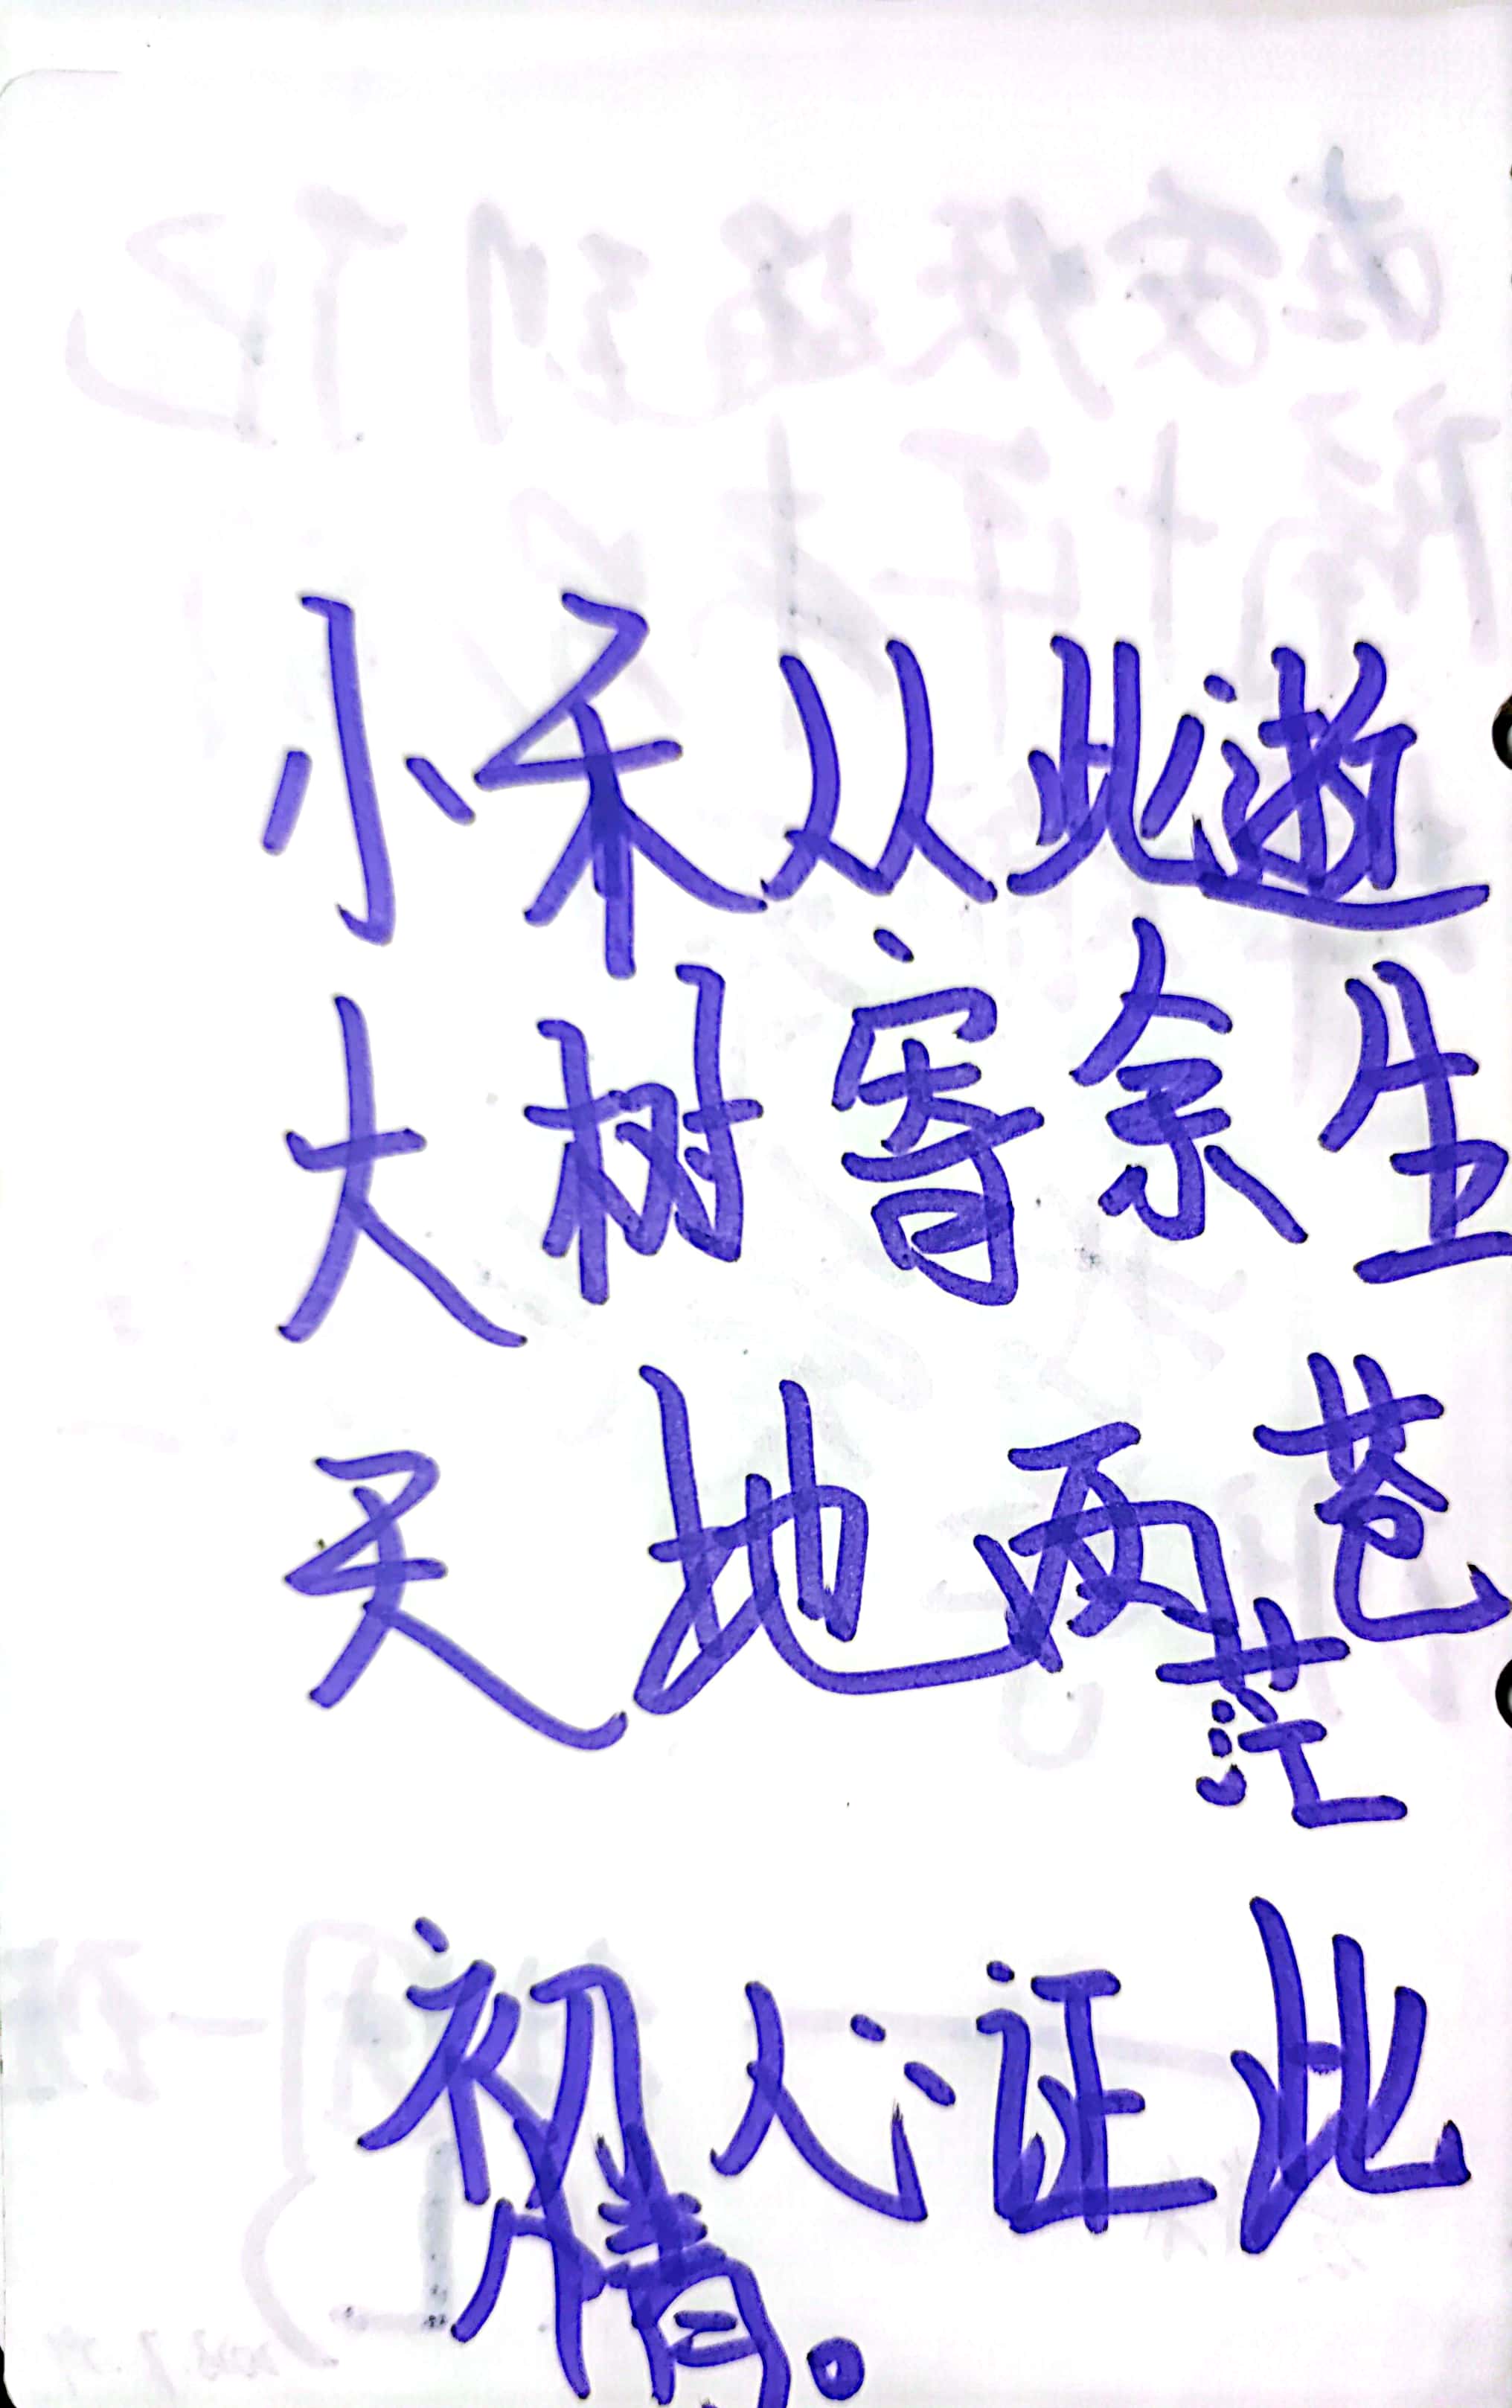 小禾从此逝
大树寄余生
天地两苍
茫
初心证此
情。